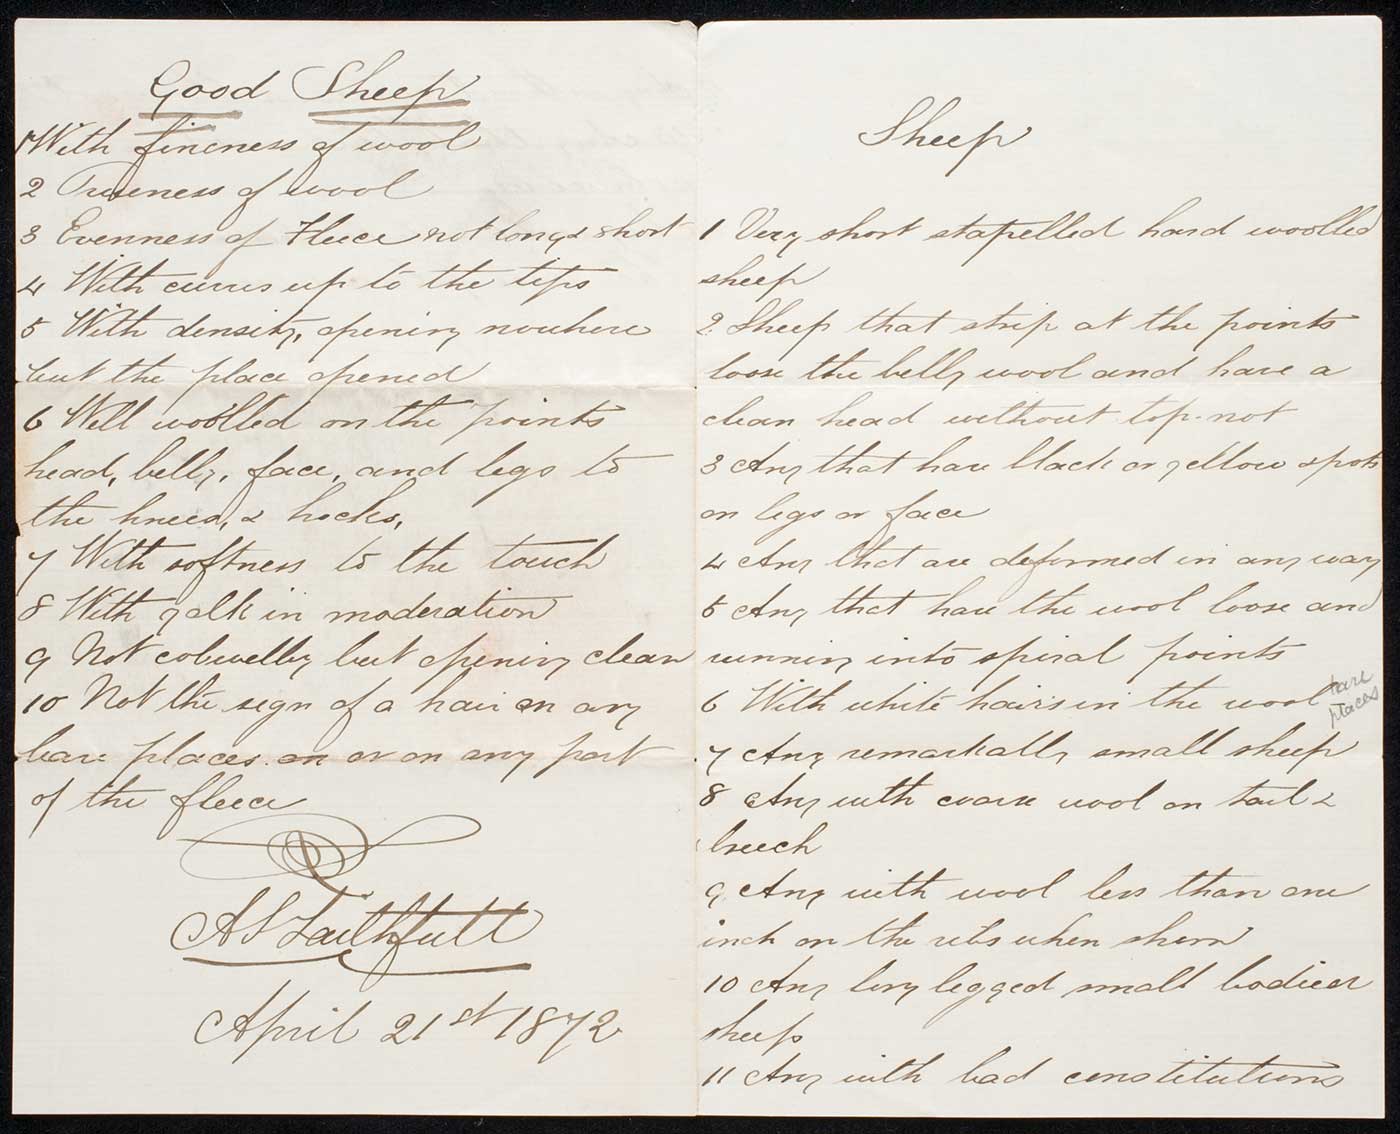 Good Sheep
1 With fineness of wool
2 Trueness of wool
3 Evenness of Fleece not long & short
4 With curves up to the tips
5 With density, opening nowhere
but the place opened
6 Well woolled on the points
head, belly, face, and legs to
the knees, & hocks,
7 With softness to the touch
8 With yolk in moderation
9 Not cobwebby but opening clean
10 Not the sign of a hair on any
bare places on or on any part
of the fleece
A L Faithfull
April 21st 1872
Sheep
1 Very short stapelled hard woolled
sheep
2 Sheep that strip at the points
loose the belly wool and have a
clean head without top-not
3 Any that have black or yellow spots
on legs or face
4 Any that are deformed in any way
5 Any that have the wool loose and
running into spiral points
6 With white hairs in the wool bare
places
7 Any remarkally small sheep
8 Any with coarse wool on tail &
breech
9 Any with wool less than one
inch on the ribs when shorn
10 Any long legged small bodied
sheep
11 Any with bad constitutions